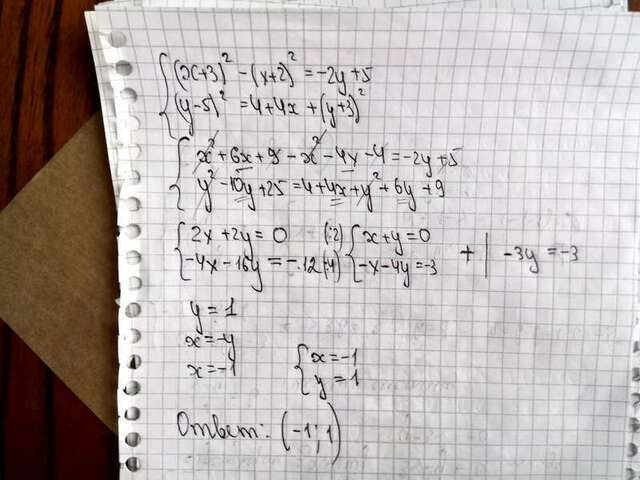 (x+3)² - (x+2)² = -2y+5
(y-5)² = 4+4x+(y+3)²
x²+6x+9-x²-4x-4=-2y+5
y²-10y+25=4+4x+y²+6y+9
2x+2y=0 (:2) x+y=0
-4x-16y=-12 (:4) -x-4y=-3 + | -3y=-3
y=1
x=-y
x=-1 x=-1
y=1
Ответ: (-1;1)